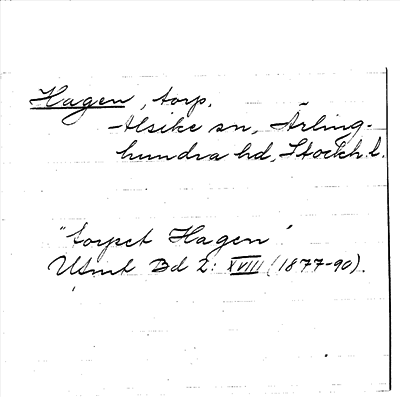 Hagen, torp.
Alsike sn, Ärling-
hundra hd, Stockh. l.
"torpet Hagen"
Utmt Bd 2: XVIII (1877-90).